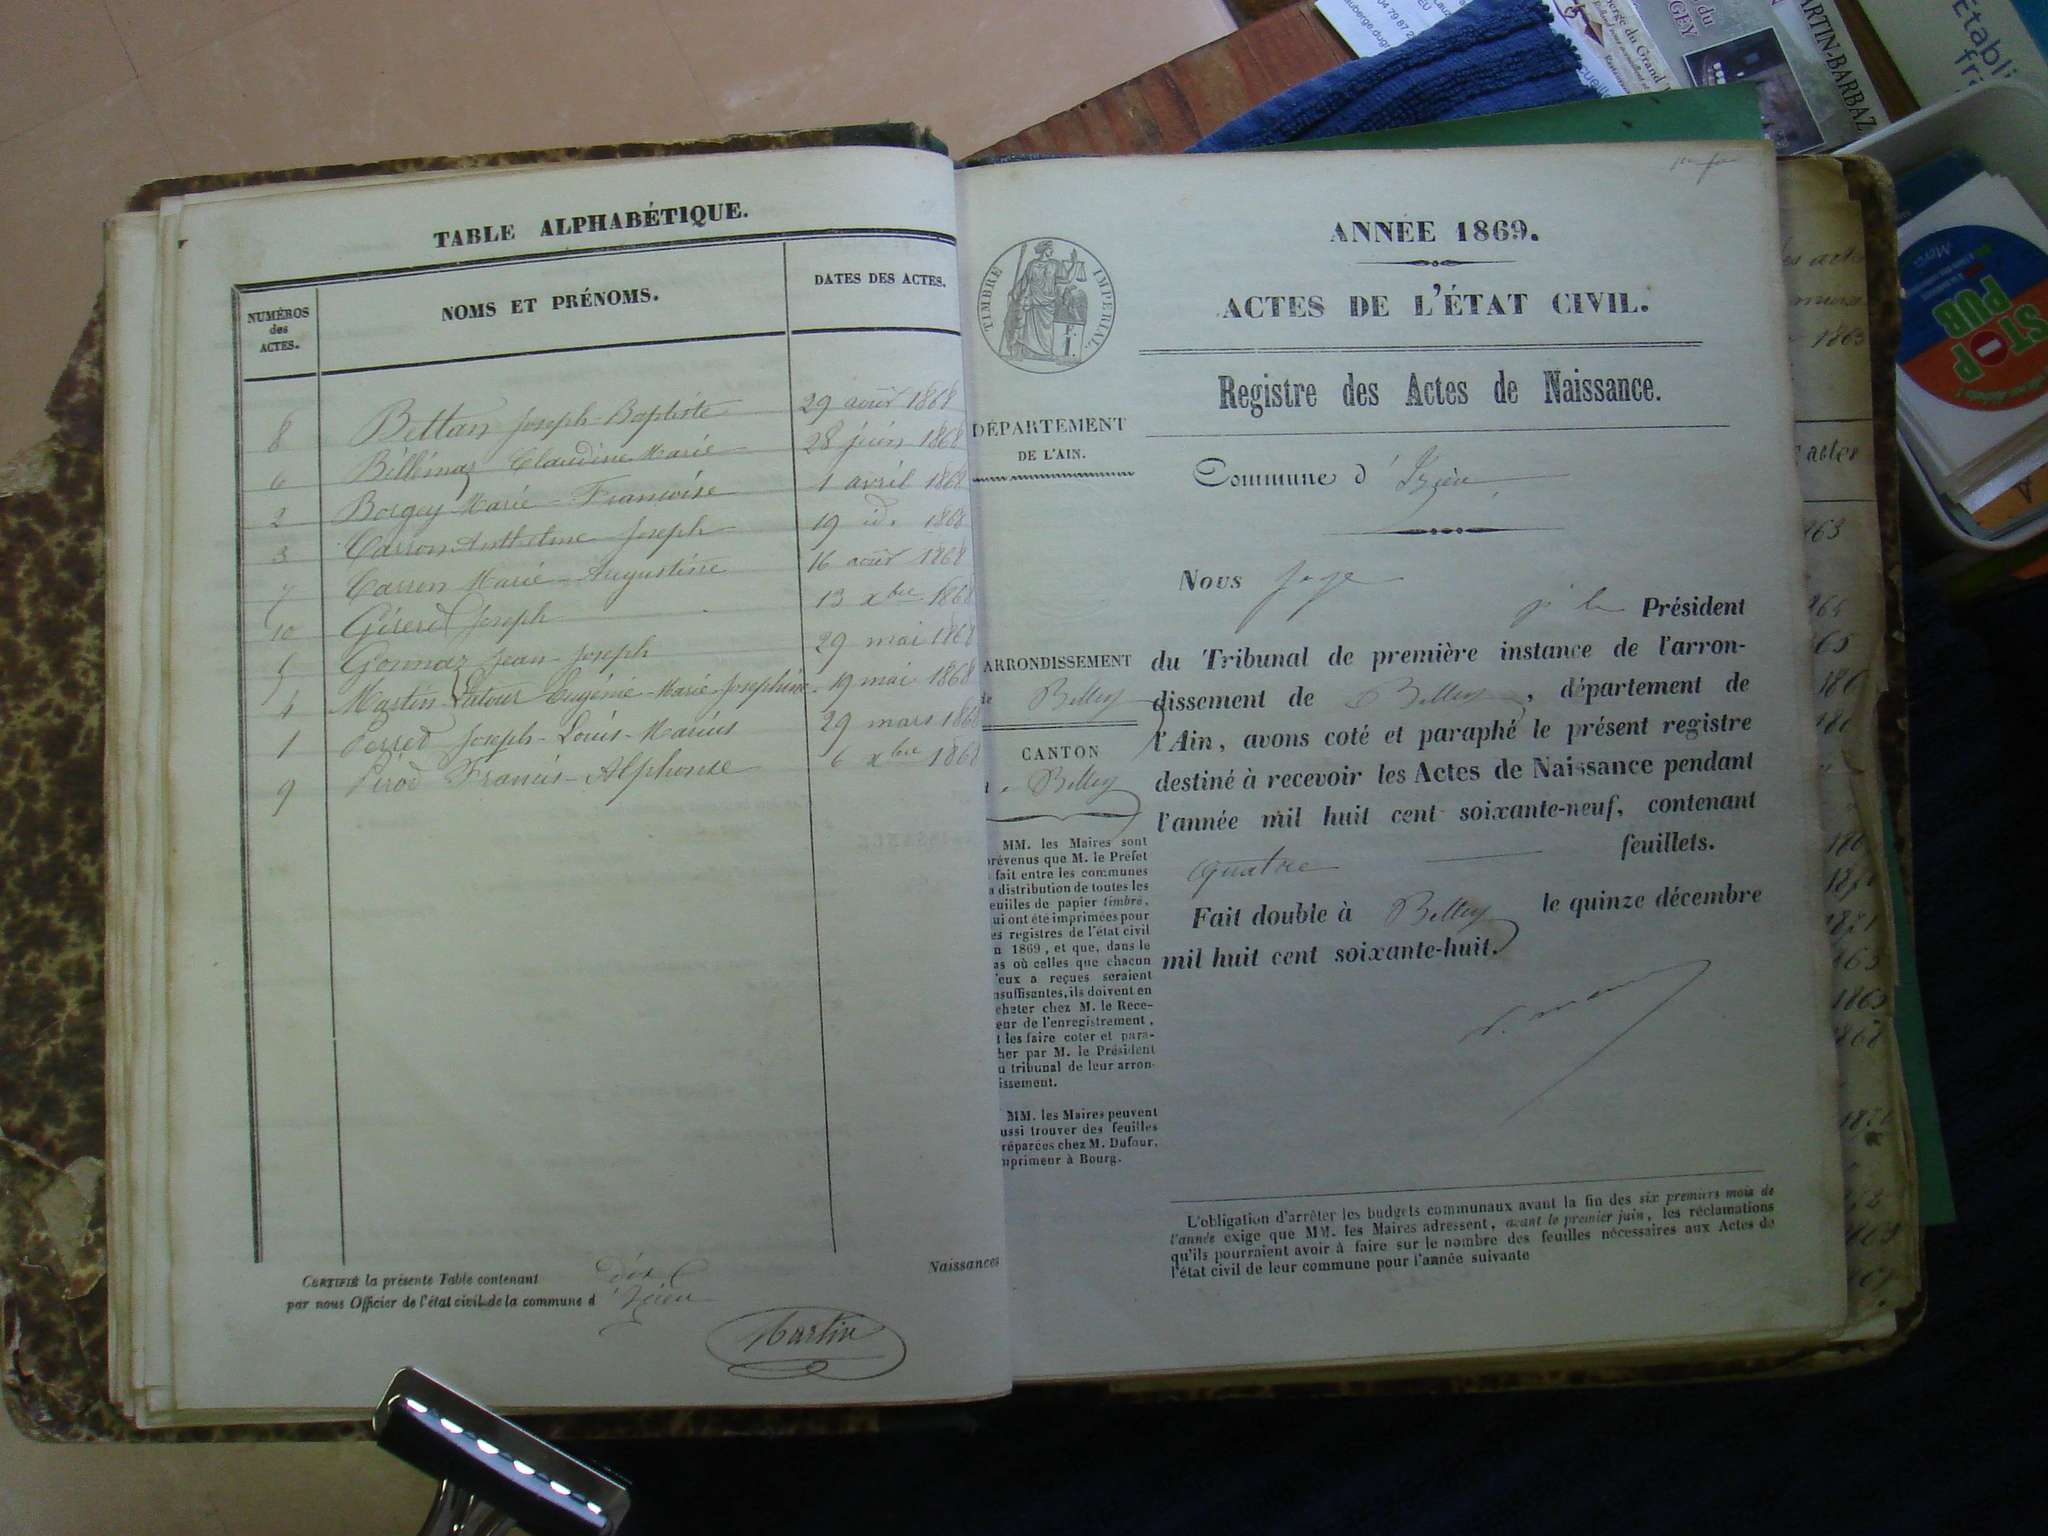 TABLE ALPHABÉTIQUE.
NUMÉROS des ACTES.
NOMS ET PRÉNOMS.
DATES DES ACTES.
8 Bettan Joseph-Baptiste 29 août 1868
6 Billémaz Claudine Marie 28 juin 1868
2 Borgey Marie-Françoise 1 avril 1868
3 Carron Anthelme Joseph 19 id. 1868
7 Carron Marie-Augustine 16 août 1868
10 Gérerd Joseph 13 xbre 1868
5 Gonnaz Jean-Joseph 29 mai 1868
4 Martin Latour Eugénie-Marie-Josephine 19 mai 1868
1 Perred Joseph-Louis-Marius 29 mars 1868
9 Pérod Francis-Alphonse 6 xbre 1868
CERTIFIÉ la présente Table contenant dix Naissances
par nous Officier de l'état civil de la commune d'Izieu
Martin
TIMBRE IMPÉRIAL.
DÉPARTEMENT
DE L'AIN.
ARRONDISSEMENT
de Belley
CANTON
Belley
MM. les Maires sont
prévenus que M. le Préfet
fait entre les communes
la distribution de toutes les
feuilles de papier timbré,
qui ont été imprimées pour
les registres de l'état civil
en 1869, et que, dans le
cas où celles que chacun
d'eux a reçues seraient
insuffisantes, ils doivent en
acheter chez M. le Rece-
veur de l'enregistrement,
et les faire coter et para-
pher par M. le Président
du tribunal de leur arron-
dissement.
MM. les Maires peuvent
aussi trouver des feuilles
préparées chez M. Dufour,
imprimeur à Bourg.
ANNÉE 1869.
ACTES DE L'ÉTAT CIVIL.
Registre des Actes de Naissance.
Commune d'Izieu
Nous juge
pr le Président
du Tribunal de première instance de l'arron-
dissement de Belley, département de
l'Ain, avons coté et paraphé le présent registre
destiné à recevoir les Actes de Naissance pendant
l'année mil huit cent soixante-neuf, contenant
quatre feuillets.
Fait double à Belley le quinze décembre
mil huit cent soixante-huit.
L'obligation d'arrêter les budgets communaux avant la fin des six premiers mois de
l'année exige que MM. les Maires adressent, avant le premier juin, les réclamations
qu'ils pourraient avoir à faire sur le nombre des feuilles nécessaires aux Actes de
l'état civil de leur commune pour l'année suivante
STOP
PUB
Merci
MARTIN-BARBAZ
Établi